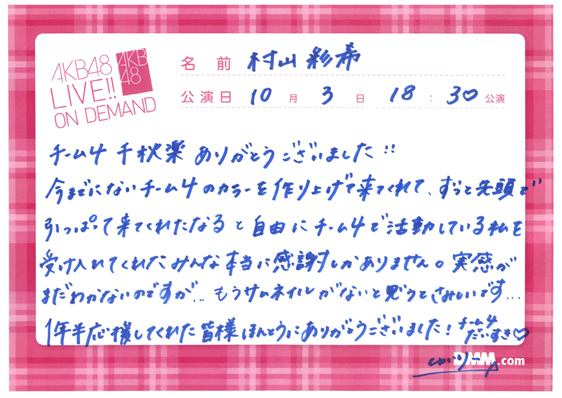 AKB48
LIVE!!
ON DEMAND
AKB
48
名前 村山彩希
公演日 10月3日 18:30♡公演
チーム4 千秋楽 ありがとうございました!!
今までにないチーム4のカラーを作り上げて来てくれて、ずっと先頭で
引っぱって来てくれたなると自由にチーム4で活動している私を
受け入れてくれたみんな本当に感謝しかありません。実感が
まだわかないのですが... もうサムネイルがないと思うとさみしいです...
1年半応援してくれた皆様ほんとうにありがとうございました! チーム4
だいすき♡
DMM.com